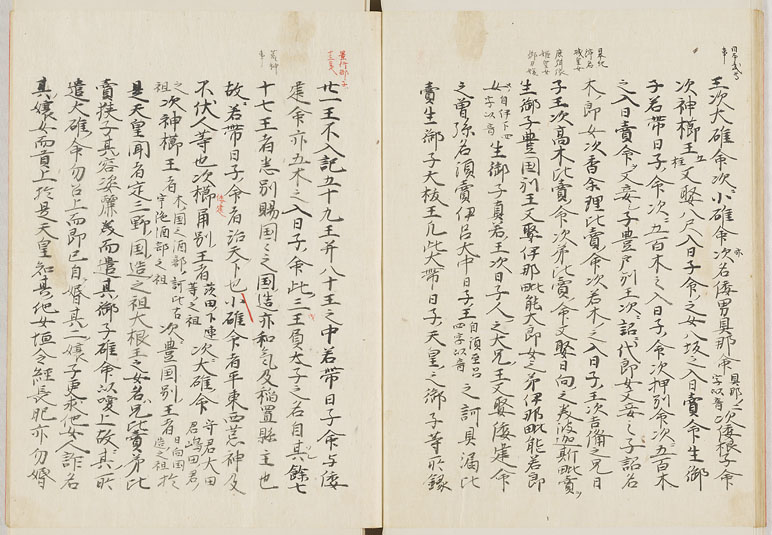 王次大碓命次小碓命亦名倭男具那命具那二字以音次倭根子命
次神櫛王五柱又娶八尺入日子命之女八坂之入日賣命生御
子若帶日子命次五百木之入日子命次押別命次五百木
之入日賣命又妾之子豊戸別王次沼代郎女又妾之子沼名
木郎女次香余理比賣命次若木之入日子王次吉備之兄日
子王次高木比賣命次弟比賣命又娶日向之美波迦斯毗賣
生御子豊国別王又娶伊那毗能大郎女之弟伊那毗能若郎
女自伊下四字以音生御子真若王次日子人之大兄王又娶倭建命
之曾孫名須賣伊呂大中日子王自須至呂四字以音之訶具漏比
賣生御子大枝王凡此大帶日子天皇之御子等所録
廿一王不入記五十九王并八十王之中若帶日子命与倭
建命亦五木之入日子命此三王負太子之名自其餘七
十七王者悉別賜国々之国造亦和気及稲置縣主也
故若帶日子命者治天下也小碓命者平東西荒神及
不伏人等也次櫛角別王者茨田下連等之祖次大碓命守君大田君嶋田君
之祖次神櫛王者木国之酒部阿比古宇陀酒部之祖次豊国別王者日向国造之祖於
是天皇聞看定三野国造之祖大根王之女名兄比賣弟比
賣子其容姿麗美而遣其御子碓命以喚上故其所
遣大碓命勿召上而即己自婚其二孃子更求他女人詐名
其孃女而貢上於是天皇知其他女恒令經長眼亦勿婚